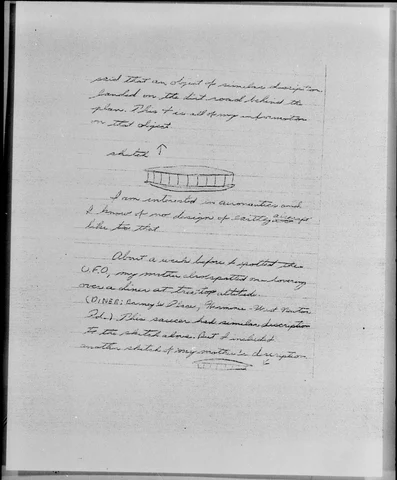 said that an object of similar description
landed on the dirt road behind the
plane. This is all of my information
on that object.
sketch ↑
I am interested in aeronautics and
I know of no design of earthly aircraft
like to that.
About a week before I spotted the
U.F.O., my mother also spotted one hovering
over a diner at tree top altitude.
(DINER: Carney's Place, - West Newton
Rd.) This saucer had similar description
to the sketch above. But I included
another sketch of my mother's description